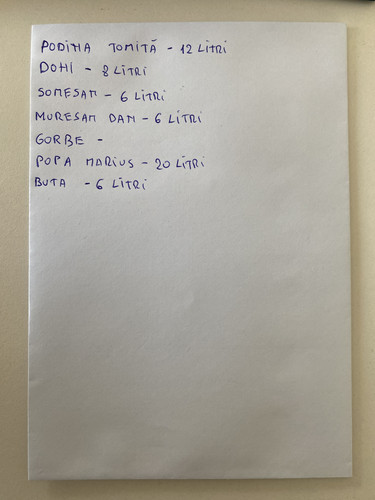 PODINA TOMIȚĂ - 12 LITRI
DOHI - 8 LITRI
SOMESAN - 6 LITRI
MURESAN DAN - 6 LITRI
GORBE -
POPA MARIUS - 20 LITRI
BUTA - 6 LITRI